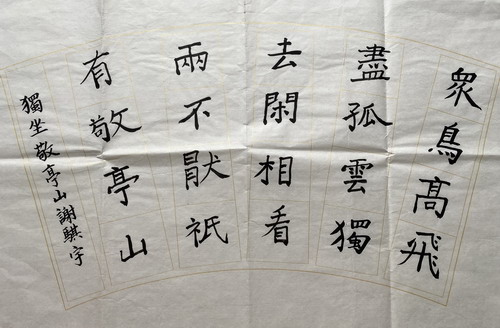 眾鳥高飛
盡孤雲獨
去閑相看
兩不猒祇
有敬亭山
獨坐敬亭山謝騏宇